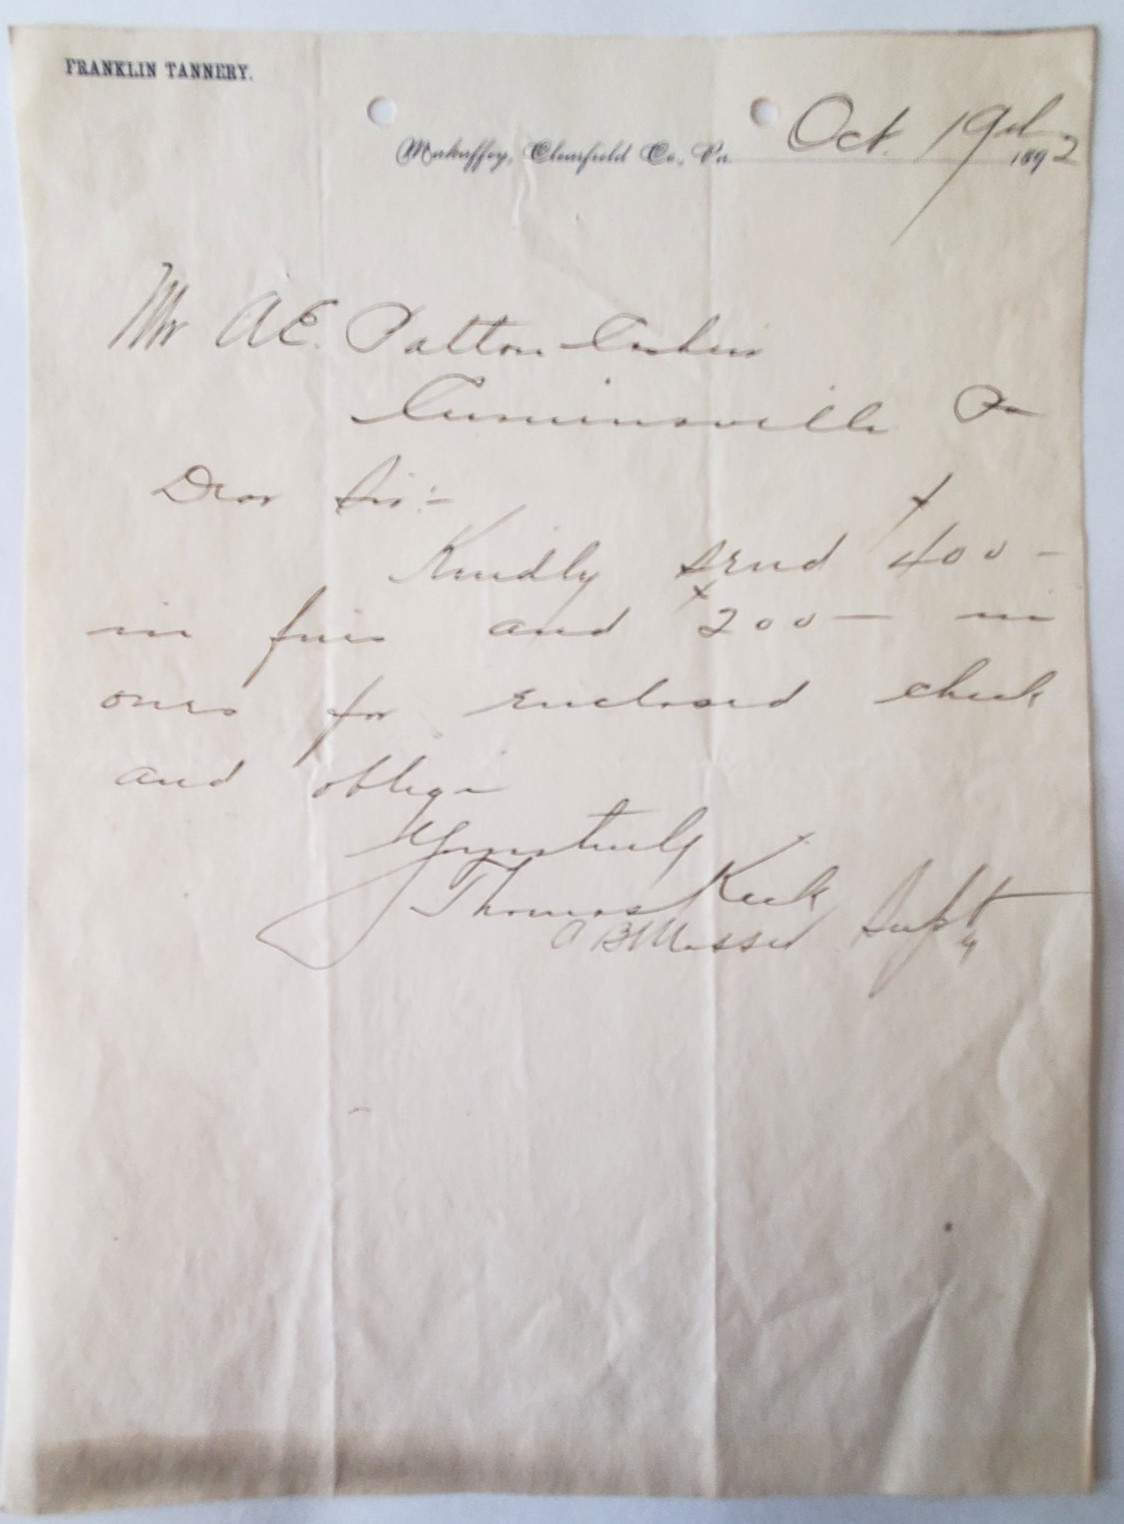 FRANKLIN TANNERY.
Mahaffey, Clearfield Co., Pa. Oct. 19th 1892
Mr A. E. Patton Cashier
Curwinsville Pa
Dear Sir:-
Kindly send $400-
in fives and $200- in
ones for enclosed check
and oblige
Yours truly
Thomas Keck Supt